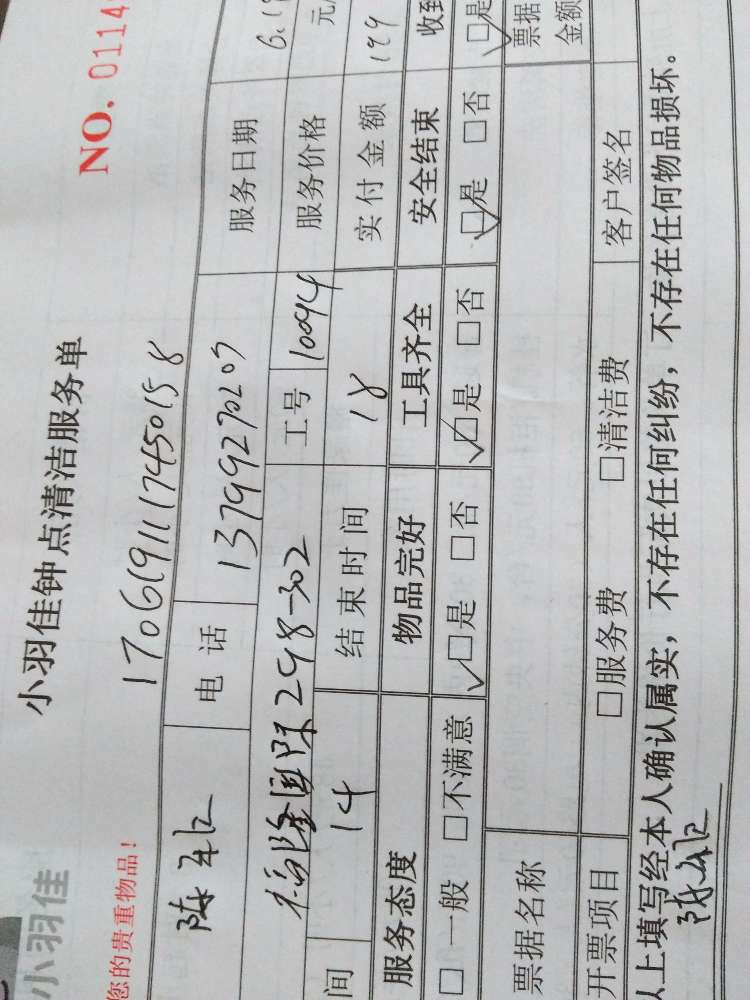 小羽佳
小羽佳钟点清洁服务单
NO. 01149
您的贵重物品!
170619111745015 8
电话 13799270207 服务日期 6.19
福隆国际298-302 工号 10094 服务价格 元/
间 14 结束时间 18 实付金额 199
服务态度 物品完好 工具齐全 安全结束 收到
□一般 □不满意 □是 □否 □是 □否 □是 □否 □是
票据名称 票据金额
开票项目 □服务费 □清洁费 客户签名
以上填写经本人确认属实,不存在任何纠纷,不存在任何物品损坏。